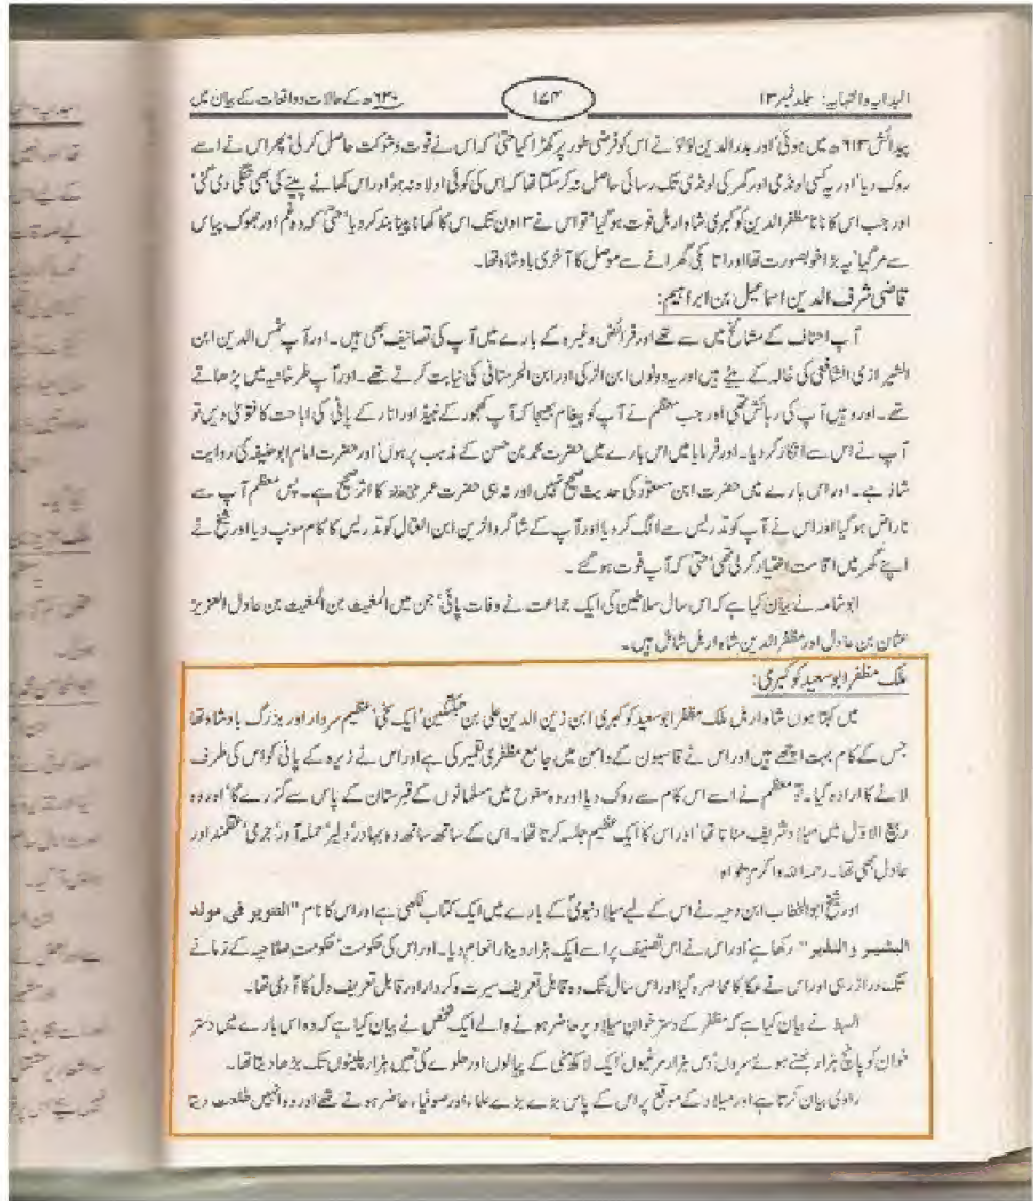 البدایہ والنہایہ: جلد نمبر ۱۳
۱۷۴
۶۳۰ھ کے حالات و واقعات کے بیان میں
پیدائش ۶۱۳ھ میں ہوئی اور بدرالدین لؤلؤ نے اس کو فرضی طور پر کھڑا کیا حتیٰ کہ اس نے قوت و شوکت حاصل کر لی، پھر اس نے اسے
روک دیا اور یہ کسی لونڈی اور گھر کی لونڈی تک رسائی حاصل نہ کر سکتا تھا کہ اس کی کوئی اولاد نہ ہو، اور اس کھانے پینے کی بھی تنگی دی گئی
اور جب اس کا نانا مظفر الدین کوکبری شاہ اربل فوت ہو گیا تو اس نے ۱۳ دن تک اس کا کھانا پینا بند کر دیا حتیٰ کہ وہ غم اور بھوک پیاس
سے مر گیا، یہ بڑا خوبصورت تھا اور اتابکی گھرانے سے موصل کا آخری بادشاہ تھا۔
قاضی شرف الدین اسماعیل بن ابراہیم:
آپ احناف کے مشائخ میں سے تھے اور فرائض وغیرہ کے بارے میں آپ کی تصانیف بھی ہیں۔ اور آپ شمس الدین ابن
الشیرازی الشافعی کی خالہ کے بیٹے ہیں اور یہ دونوں ابن الزکی اور ابن الحرستانی کی نیابت کرتے تھے۔ اور آپ طرخانیہ میں پڑھاتے
تھے۔ اور وہیں آپ کی رہائش تھی اور جب معظم نے آپ کو پیغام بھیجا کہ آپ کھجور کے نبیذ اور انار کے پانی کی اباحت کا فتویٰ دیں تو
آپ نے اس سے انکار کر دیا۔ اور فرمایا میں اس بارے میں حضرت محمد بن حسن کے مذہب پر ہوں اور حضرت امام ابوحنیفہ کی روایت
شاذ ہے۔ اور اس بارے میں حضرت ابن مسعودؓ کی حدیث صحیح نہیں اور نہ ہی حضرت عمر کا اثر صحیح ہے۔ پس معظم آپ سے
ناراض ہو گیا اور اس نے آپ کو تدریس سے الگ کر دیا اور آپ کے شاگرد الزین ابن العتال کو تدریس کا کام سونپ دیا اور شیخ نے
اپنے گھر میں اقامت اختیار کر لی تھی حتیٰ کہ آپ فوت ہو گئے۔
ابوشامہ نے بیان کیا ہے کہ اس سال سلاطین کی ایک جماعت نے وفات پائی، جن میں المغیث بن المغیث بن عادل العزیز
عثمان بن عادل اور مظفر الدین شاہ اربل شامل ہیں۔
ملک مظفر ابو سعید کوکبری:
میں کہتا ہوں شاہ اربل ملک مظفر ابو سعید کوکبری ابن زین الدین علی بن ایک سخی، عظیم سردار اور بزرگ بادشاہ تھا
جس کے کام بہت اچھے ہیں اور اس نے قاسیون کے دامن میں جامع مظفری تعمیر کی ہے اور اس نے زیرہ کے پانی کو اس کی طرف
لانے کا ارادہ کیا۔ تو معظم نے اسے اس کام سے روک دیا اور وہ سفوح میں مسلمانوں کے قبرستان کے پاس سے گزرے گا، اور وہ
ربیع الاوّل میں میلاد شریف مناتا تھا اور اس کا ایک عظیم جلسہ کرتا تھا۔ اس کے ساتھ ساتھ وہ بہادر، دلیر، حملہ آور، جری، عقلمند اور
عادل بھی تھا۔ رحمہ اللہ و اکرم
اور شیخ ابوالخطاب ابن دحیہ نے اس کے لیے میلاد نبویؐ کے بارے میں ایک کتاب لکھی ہے اور اس کا نام "التنویر فی مولد
البشیر و النذیر" رکھا ہے اور اس نے اس تصنیف پر اسے ایک ہزار دینار انعام دیا۔ اور اس کی حکومت، حکومت صلاحیہ کے زمانے
تک دراز رہی اور اس نے عکا کا محاصرہ کیا اور اس سال تک وہ قابل تعریف سیرت و کردار اور قابل تعریف دل کا آدمی تھا۔
السبط نے بیان کیا ہے کہ مظفر کے دستر خوان میلاد پر حاضر ہونے والے ایک شخص نے بیان کیا ہے کہ وہ اس بارے میں دستر
خوان کو پانچ ہزار بھنے ہوئے سروں، دس ہزار مرغیوں، ایک لاکھ مٹی کے پیالوں اور حلوے کی تیس ہزار پلیٹوں تک بڑھا دیتا تھا۔
راوی بیان کرتا ہے اور میلاد کے موقع پر اس کے پاس بڑے بڑے علماء اور صوفیاء حاضر ہوتے تھے اور وہ انہیں خلعت دیتا